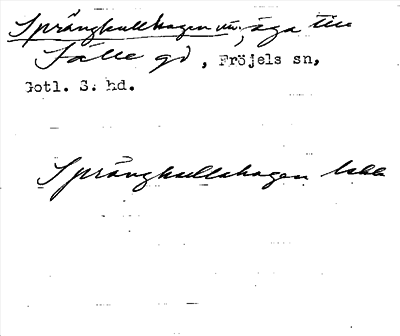 Sprängkullhagen, äga till
Sälle gd, Fröjels sn,
Gotl. S. hd.
Sprängkullshagen